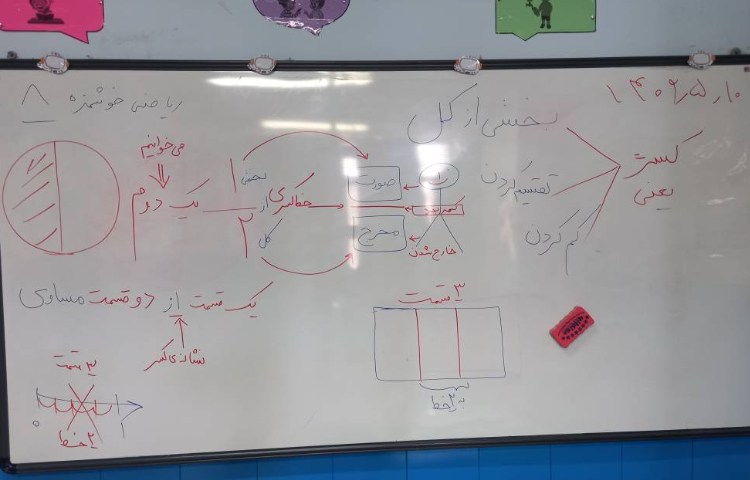 ۱۴۰۴٫۵٫۱۰
ریاضی خوشمزه ۸
کسر
یعنی
بخشی از کل
تقسیم کردن
کم کردن
صورت
مخرج
خارج شدن
خط کسری
۱
بخشی
از
کل
۲
یک دوم
می‌خوانیم
یک قسمت از دو قسمت مساوی
نشانه‌ی کسر
۳ قسمت
۲ خط
۳ قسمت
۰
۱
۲ خط